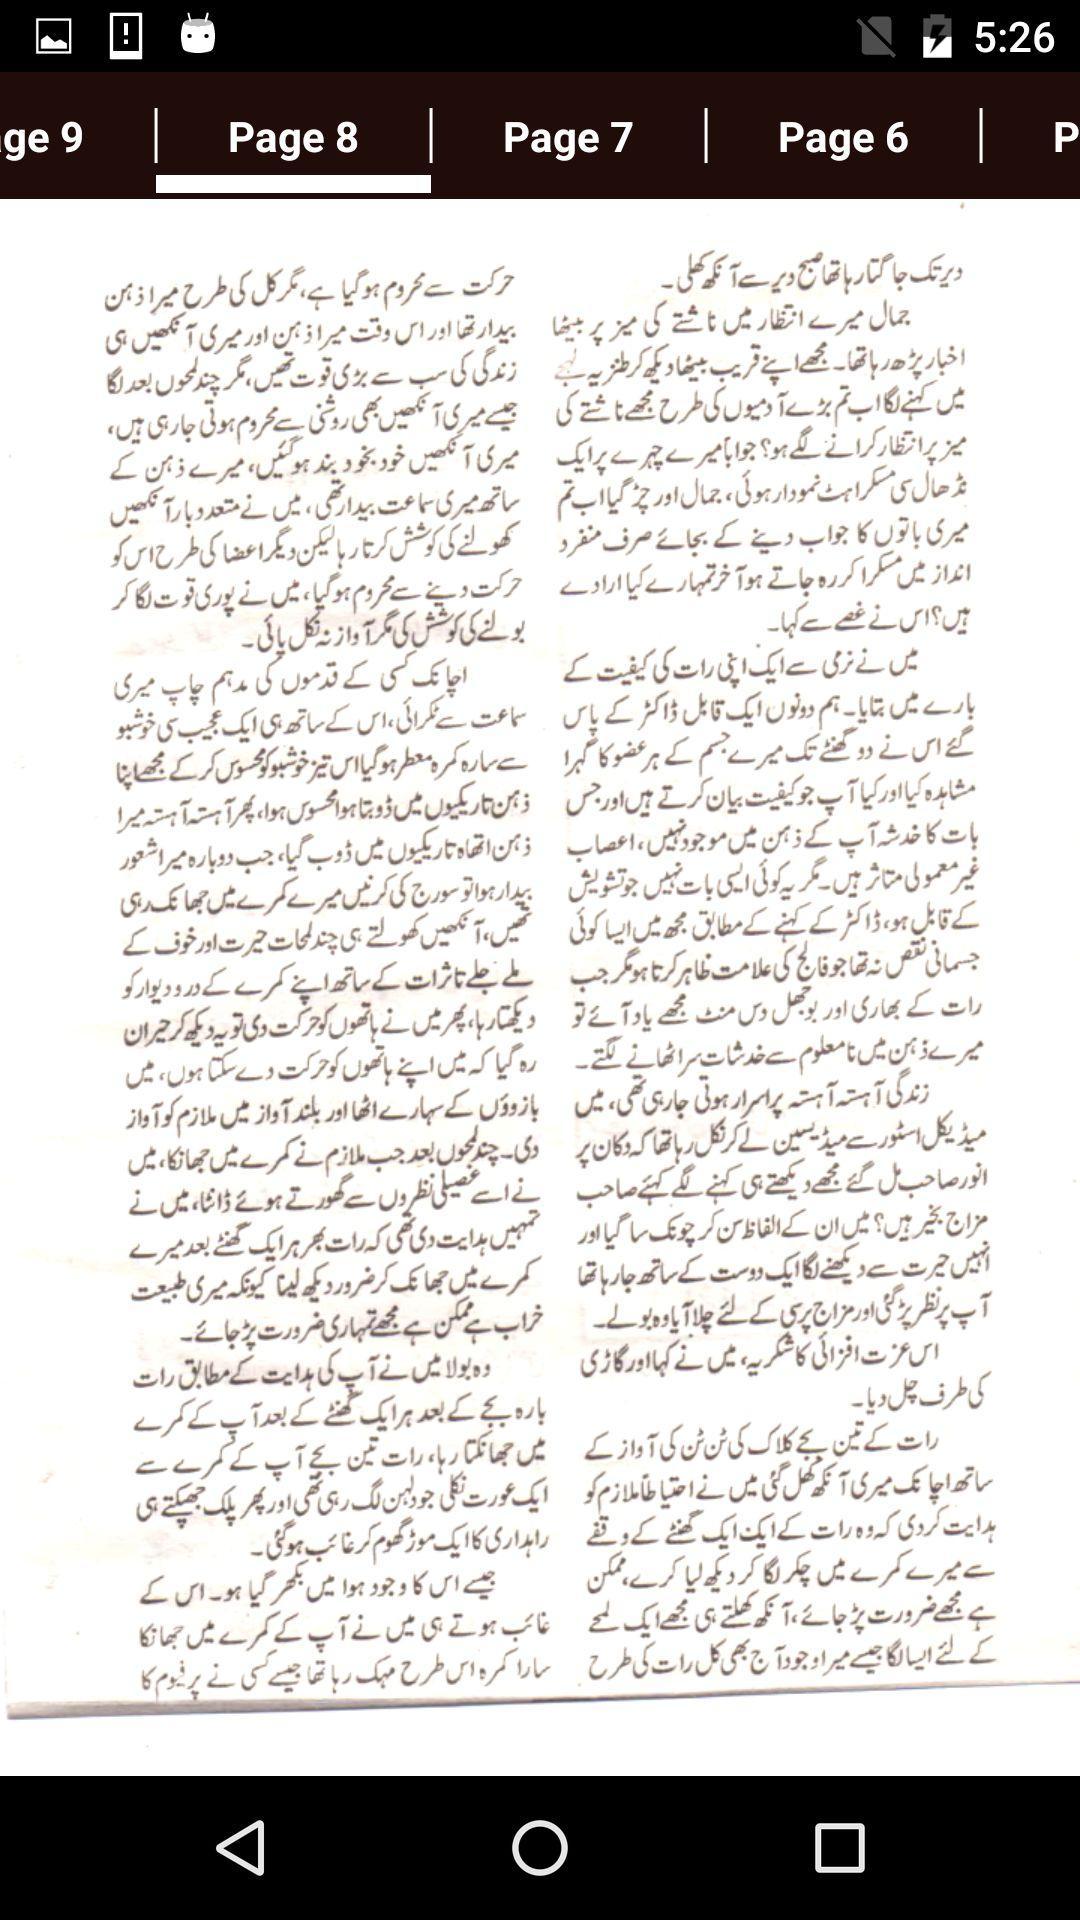 5:26
ge 9
Page 8
Page 7
Page 6
P
دیر تک جاگتا رہا تھا صبح دیر سے آنکھ کھلی۔
جمال میرے انتظار میں ناشتے کی میز پر بیٹھا
اخبار پڑھ رہا تھا۔ مجھے اپنے قریب بیٹھا دیکھ کر طنزیہ لہجے
میں کہنے لگا اب تم بڑے آدمیوں کی طرح مجھے ناشتے کی
میز پر انتظار کرانے لگے ہو؟ جواباً میرے چہرے پر ایک
نڈھال سی مسکراہٹ نمودار ہوئی، جمال اور چڑ گیا اب تم
میری باتوں کا جواب دینے کے بجائے صرف منفرد
انداز میں مسکرا کر رہ جاتے ہو آخر تمہارے کیا ارادے
ہیں؟ اس نے غصے سے کہا۔
میں نے نرمی سے ایک اپنی رات کی کیفیت کے
بارے میں بتایا۔ ہم دونوں ایک قابل ڈاکٹر کے پاس
گئے اس نے دو گھنٹے تک میرے جسم کے ہر عضو کا گہرا
مشاہدہ کیا اور کیا آپ جو کیفیت بیان کرتے ہیں اور جس
بات کا خدشہ آپ کے ذہن میں موجود نہیں، اعصاب
غیر معمولی متاثر ہیں۔ مگر یہ کوئی ایسی بات نہیں جو تشویش
کے قابل ہو، ڈاکٹر کے کہنے کے مطابق مجھ میں ایسا کوئی
جسمانی نقص نہ تھا جو فالج کی علامت ظاہر کرتا ہو مگر جب
رات کے بھاری اور بوجھل دس منٹ مجھے یاد آئے تو
میرے ذہن میں نامعلوم سے خدشات سر اٹھانے لگتے۔
زندگی آہستہ آہستہ پراسرار ہوتی جا رہی تھی، میں
میڈیکل اسٹور سے میڈیسین لے کر نکل رہا تھا کہ دکان پر
انور صاحب مل گئے مجھے دیکھتے ہی کہنے لگے کہئے صاحب
مزاج بخیر ہیں؟ میں ان کے الفاظ سن کر چونک سا گیا اور
انہیں حیرت سے دیکھنے لگا ایک دوست کے ساتھ جا رہا تھا
آپ پر نظر پڑ گئی اور مزاج پرسی کے لئے چلا آیا وہ بولے۔
اس عزت افزائی کا شکریہ، میں نے کہا اور گاڑی
کی طرف چل دیا۔
رات کے تین بجے کلاک کی ٹن ٹن کی آواز کے
ساتھ اچانک میری آنکھ کھل گئی میں نے احتیاطاً ملازم کو
ہدایت کر دی کہ وہ رات کے ایک ایک گھنٹے کے وقفے
سے میرے کمرے میں چکر لگا کر دیکھ لیا کرے، ممکن
ہے مجھے ضرورت پڑ جائے، آنکھ کھلتے ہی مجھے ایک لمحے
کے لئے ایسا لگا جیسے میرا وجود آج بھی کل رات کی طرح
حرکت سے محروم ہو گیا ہے، مگر کل کی طرح میرا ذہن
بیدار تھا اور اس وقت میرا ذہن اور میری آنکھیں ہی
زندگی کی سب سے بڑی قوت تھیں، مگر چند لمحوں بعد لگا
جیسے میری آنکھیں بھی روشنی سے محروم ہوتی جا رہی ہیں،
میری آنکھیں خود بخود بند ہو گئیں، میرے ذہن کے
ساتھ میری سماعت بیدار تھی، میں نے متعدد بار آنکھیں
کھولنے کی کوشش کرتا رہا لیکن دیگر اعضا کی طرح اس کو
حرکت دینے سے محروم ہو گیا، میں نے پوری قوت لگا کر
بولنے کی کوشش کی مگر آواز نہ نکل پائی۔
اچانک کسی کے قدموں کی مدہم چاپ میری
سماعت سے ٹکرائی، اس کے ساتھ ہی ایک عجیب سی خوشبو
سے سارہ کمرہ معطر ہو گیا اس تیز خوشبو کو محسوس کر کے مجھے اپنا
ذہن تاریکیوں میں ڈوبتا ہوا محسوس ہوا، پھر آہستہ آہستہ میرا
ذہن اتھاہ تاریکیوں میں ڈوب گیا، جب دوبارہ میرا شعور
بیدار ہوا تو سورج کی کرنیں میرے کمرے میں جھانک رہی
تھیں، آنکھیں کھولتے ہی چند لمحات حیرت اور خوف کے
ملے جلے تاثرات کے ساتھ اپنے کمرے کے در و دیوار کو
دیکھتا رہا، پھر میں نے ہاتھوں کو حرکت دی تو یہ دیکھ کر حیران
رہ گیا کہ میں اپنے ہاتھوں کو حرکت دے سکتا ہوں، میں
بازوؤں کے سہارے اٹھا اور بلند آواز میں ملازم کو آواز
دی۔ چند لمحوں بعد جب ملازم نے کمرے میں جھانکا، میں
نے اسے غصیلی نظروں سے گھورتے ہوئے ڈانٹا، میں نے
تمہیں ہدایت دی تھی کہ رات بھر ہر ایک گھنٹے بعد میرے
کمرے میں جھانک کر ضرور دیکھ لینا کیونکہ میری طبیعت
خراب ہے ممکن ہے مجھے تمہاری ضرورت پڑ جائے۔
وہ بولا میں نے آپ کی ہدایت کے مطابق رات
بارہ بجے کے بعد ہر ایک گھنٹے کے بعد آپ کے کمرے
میں جھانکتا رہا، رات تین بجے آپ کے کمرے سے
ایک عورت نکلی جو دلہن لگ رہی تھی اور پھر پلک جھپکتے ہی
راہداری کا ایک موڑ گھوم کر غائب ہو گئی۔
جیسے اس کا وجود ہوا میں بکھر گیا ہو۔ اس کے
غائب ہوتے ہی میں نے آپ کے کمرے میں جھانکا
سارا کمرہ اس طرح مہک رہا تھا جیسے کسی نے پرفیوم کا